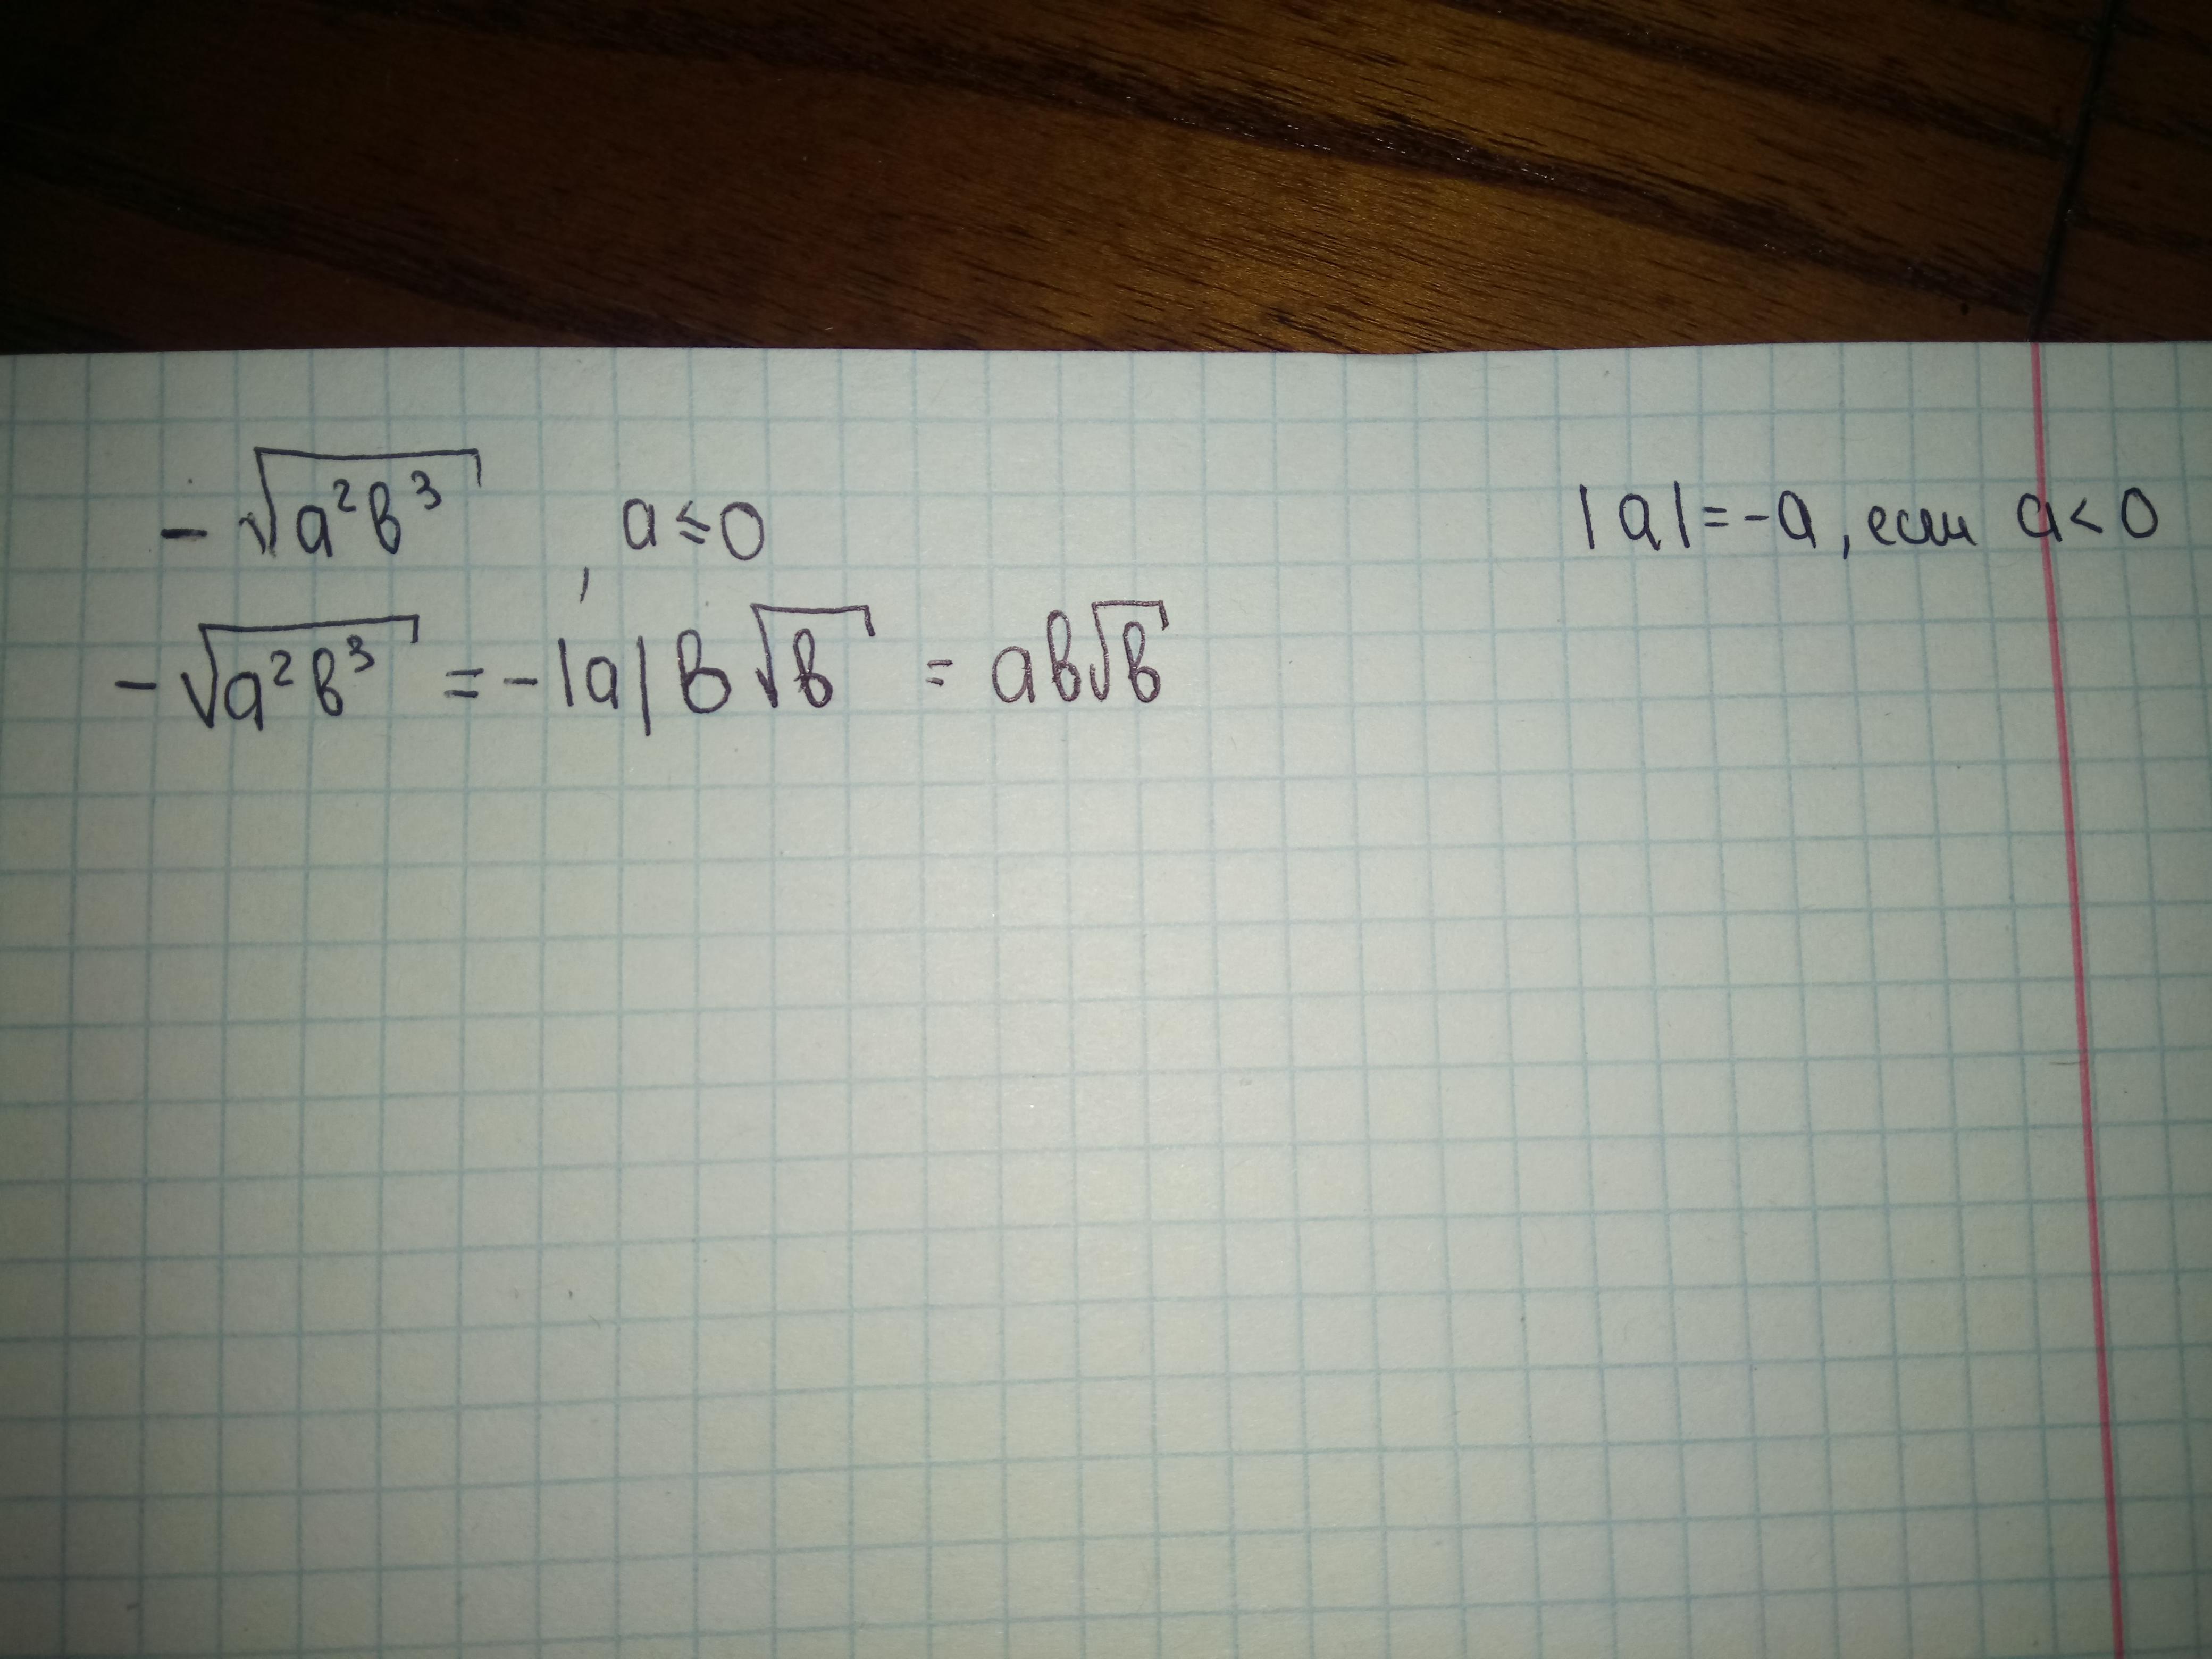 -√a²b³, a≤0
|a|=-a, если a<0
-√a²b³ = -|a|b√b = ab√b